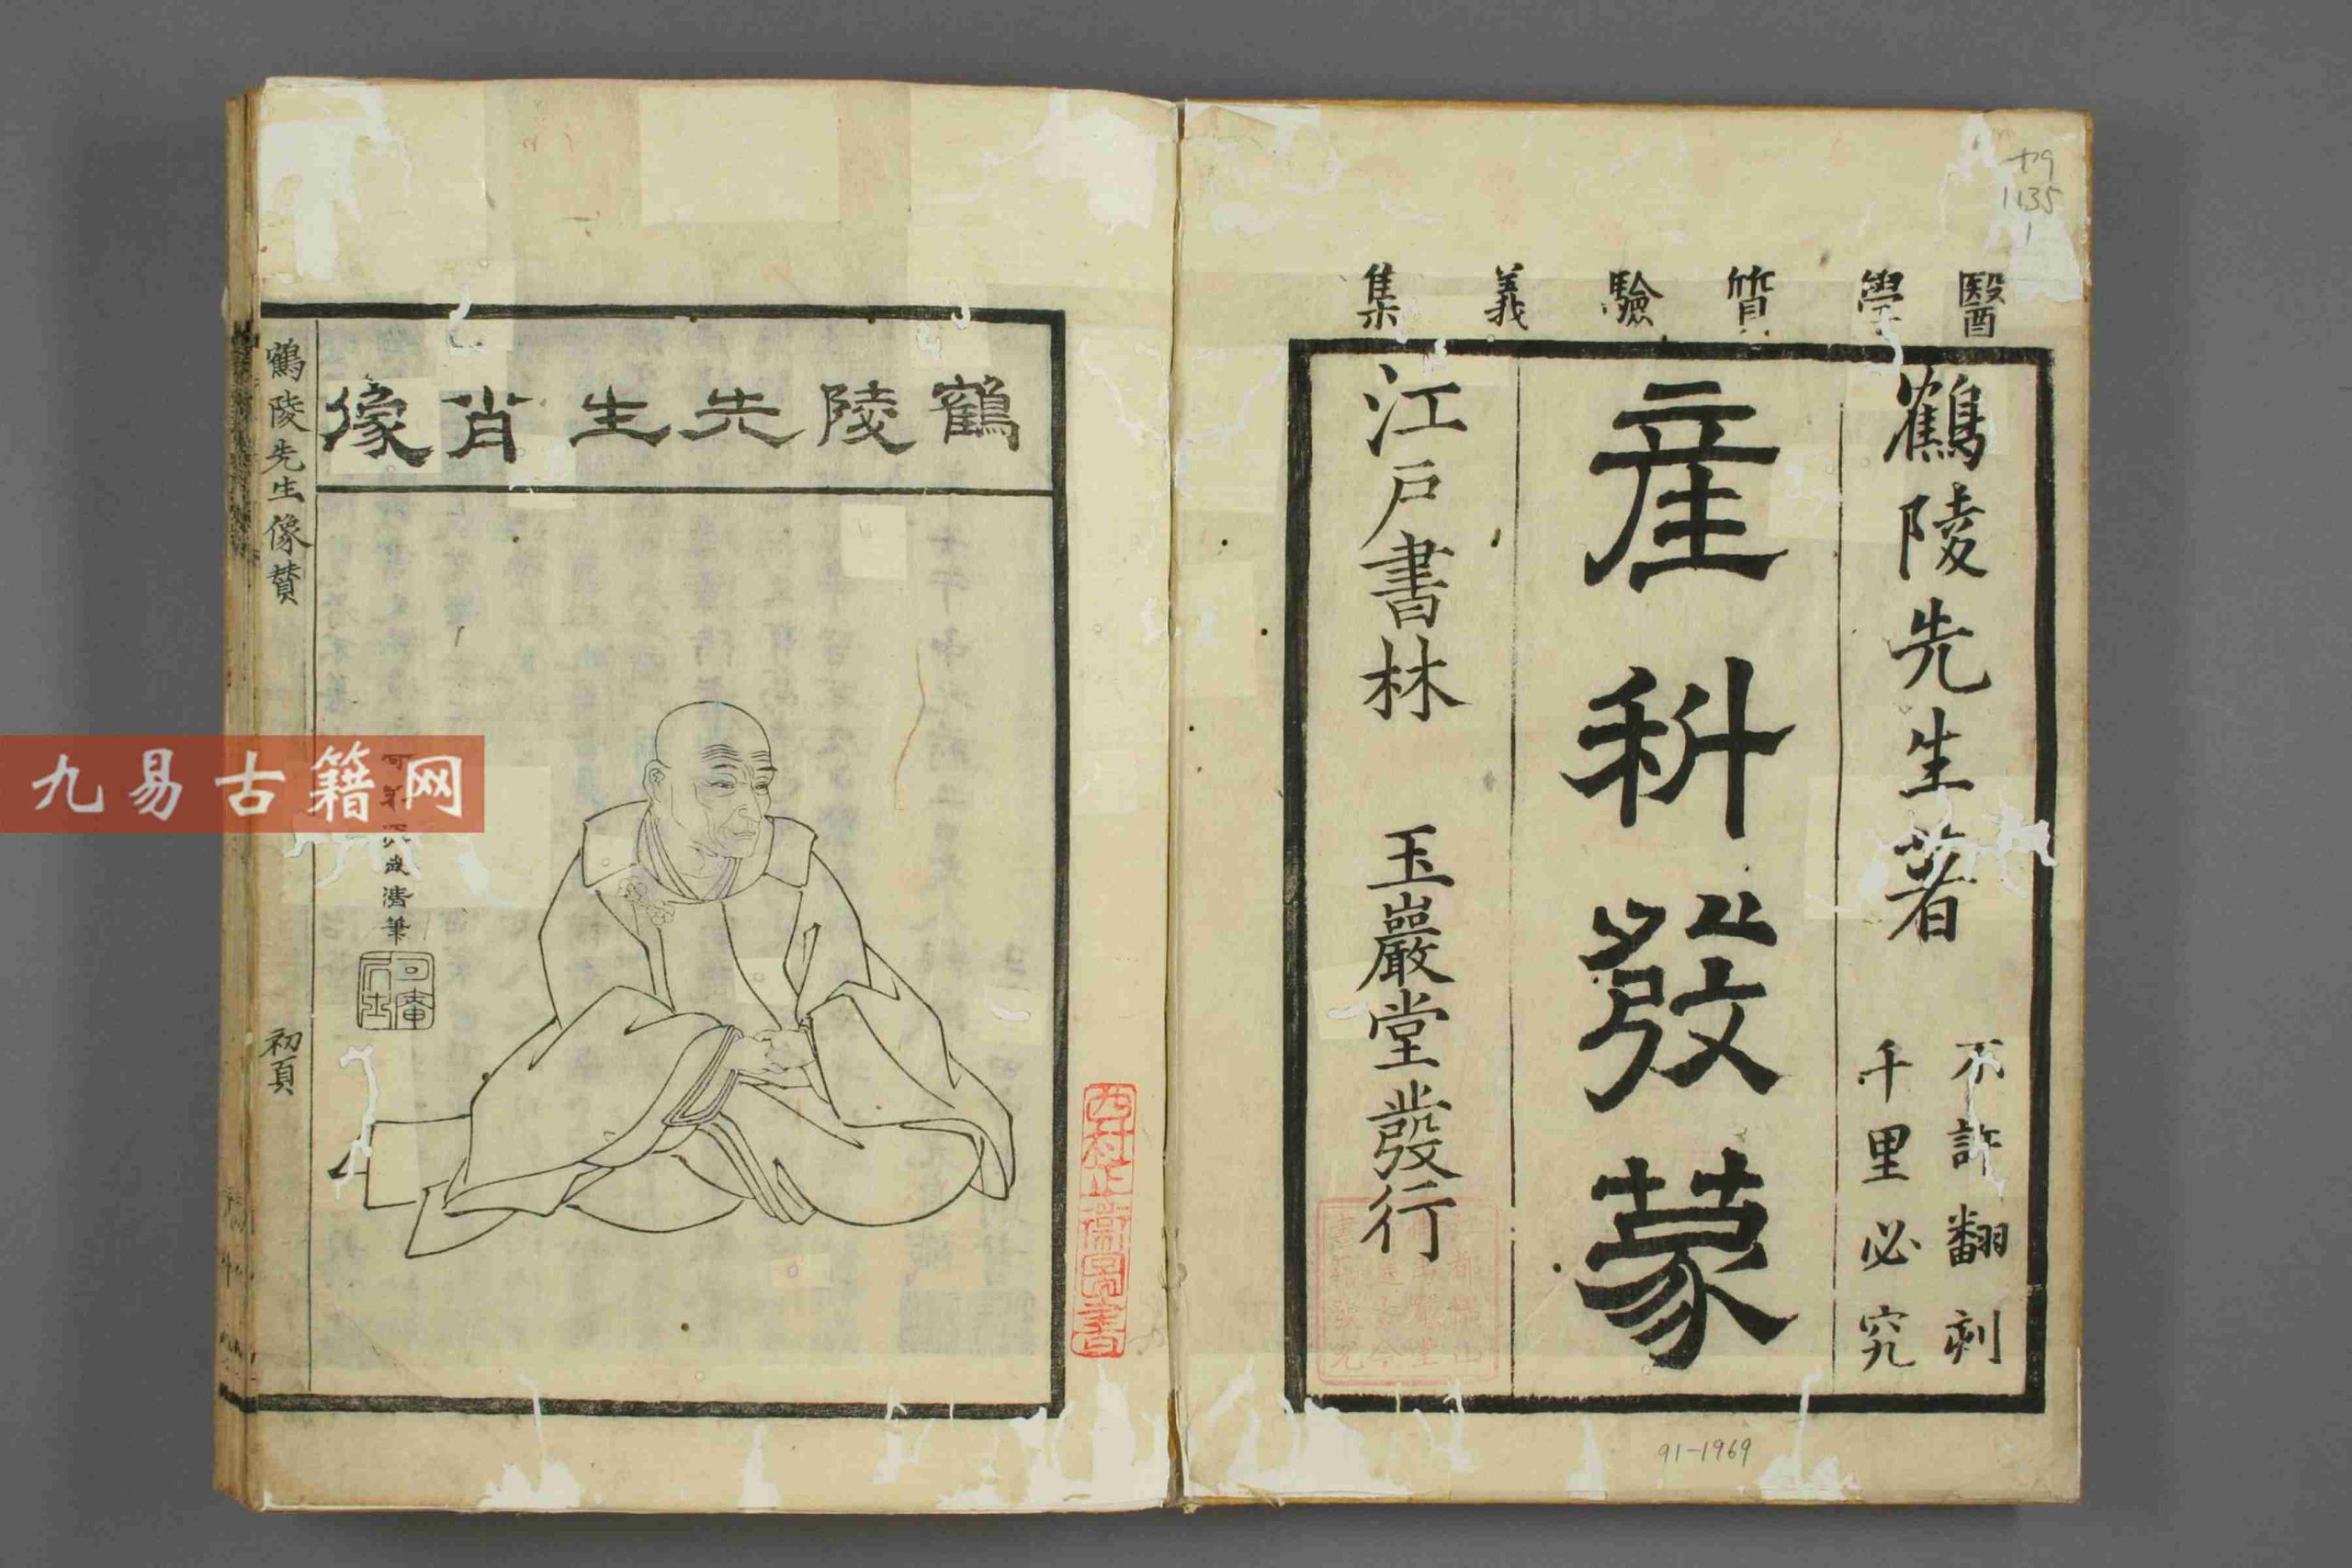 醫學質驗義集
鶴陵先生著
不許翻刻
千里必究
產科發蒙
江戸書林 玉巖堂發行
91-1969
1135
1
鶴陵先生肖像
鶴陵先生像賛
初頁
九易古籍网